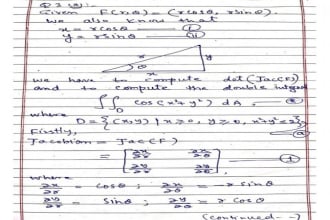 Q 3 (a).
Given F(r,θ) = (r cosθ, r sinθ).
We also know that
x = r cosθ
y = r sinθ
r
y
θ
x
we have to compute det (Jac(F))
and to compute the double integral
∫∫_D cos(x²+y²) dA
where
D = {(x,y) | x≥0, y≥0, x²+y²≤
Firstly,
Jacobian = Jac(F)
= [ ∂x/∂r ∂x/∂θ
∂y/∂r ∂y/∂θ ] — ①
where ∂x/∂r = cosθ ; ∂x/∂θ = -r sinθ
∂y/∂r = sinθ ; ∂y/∂θ = r cosθ
(continued--)